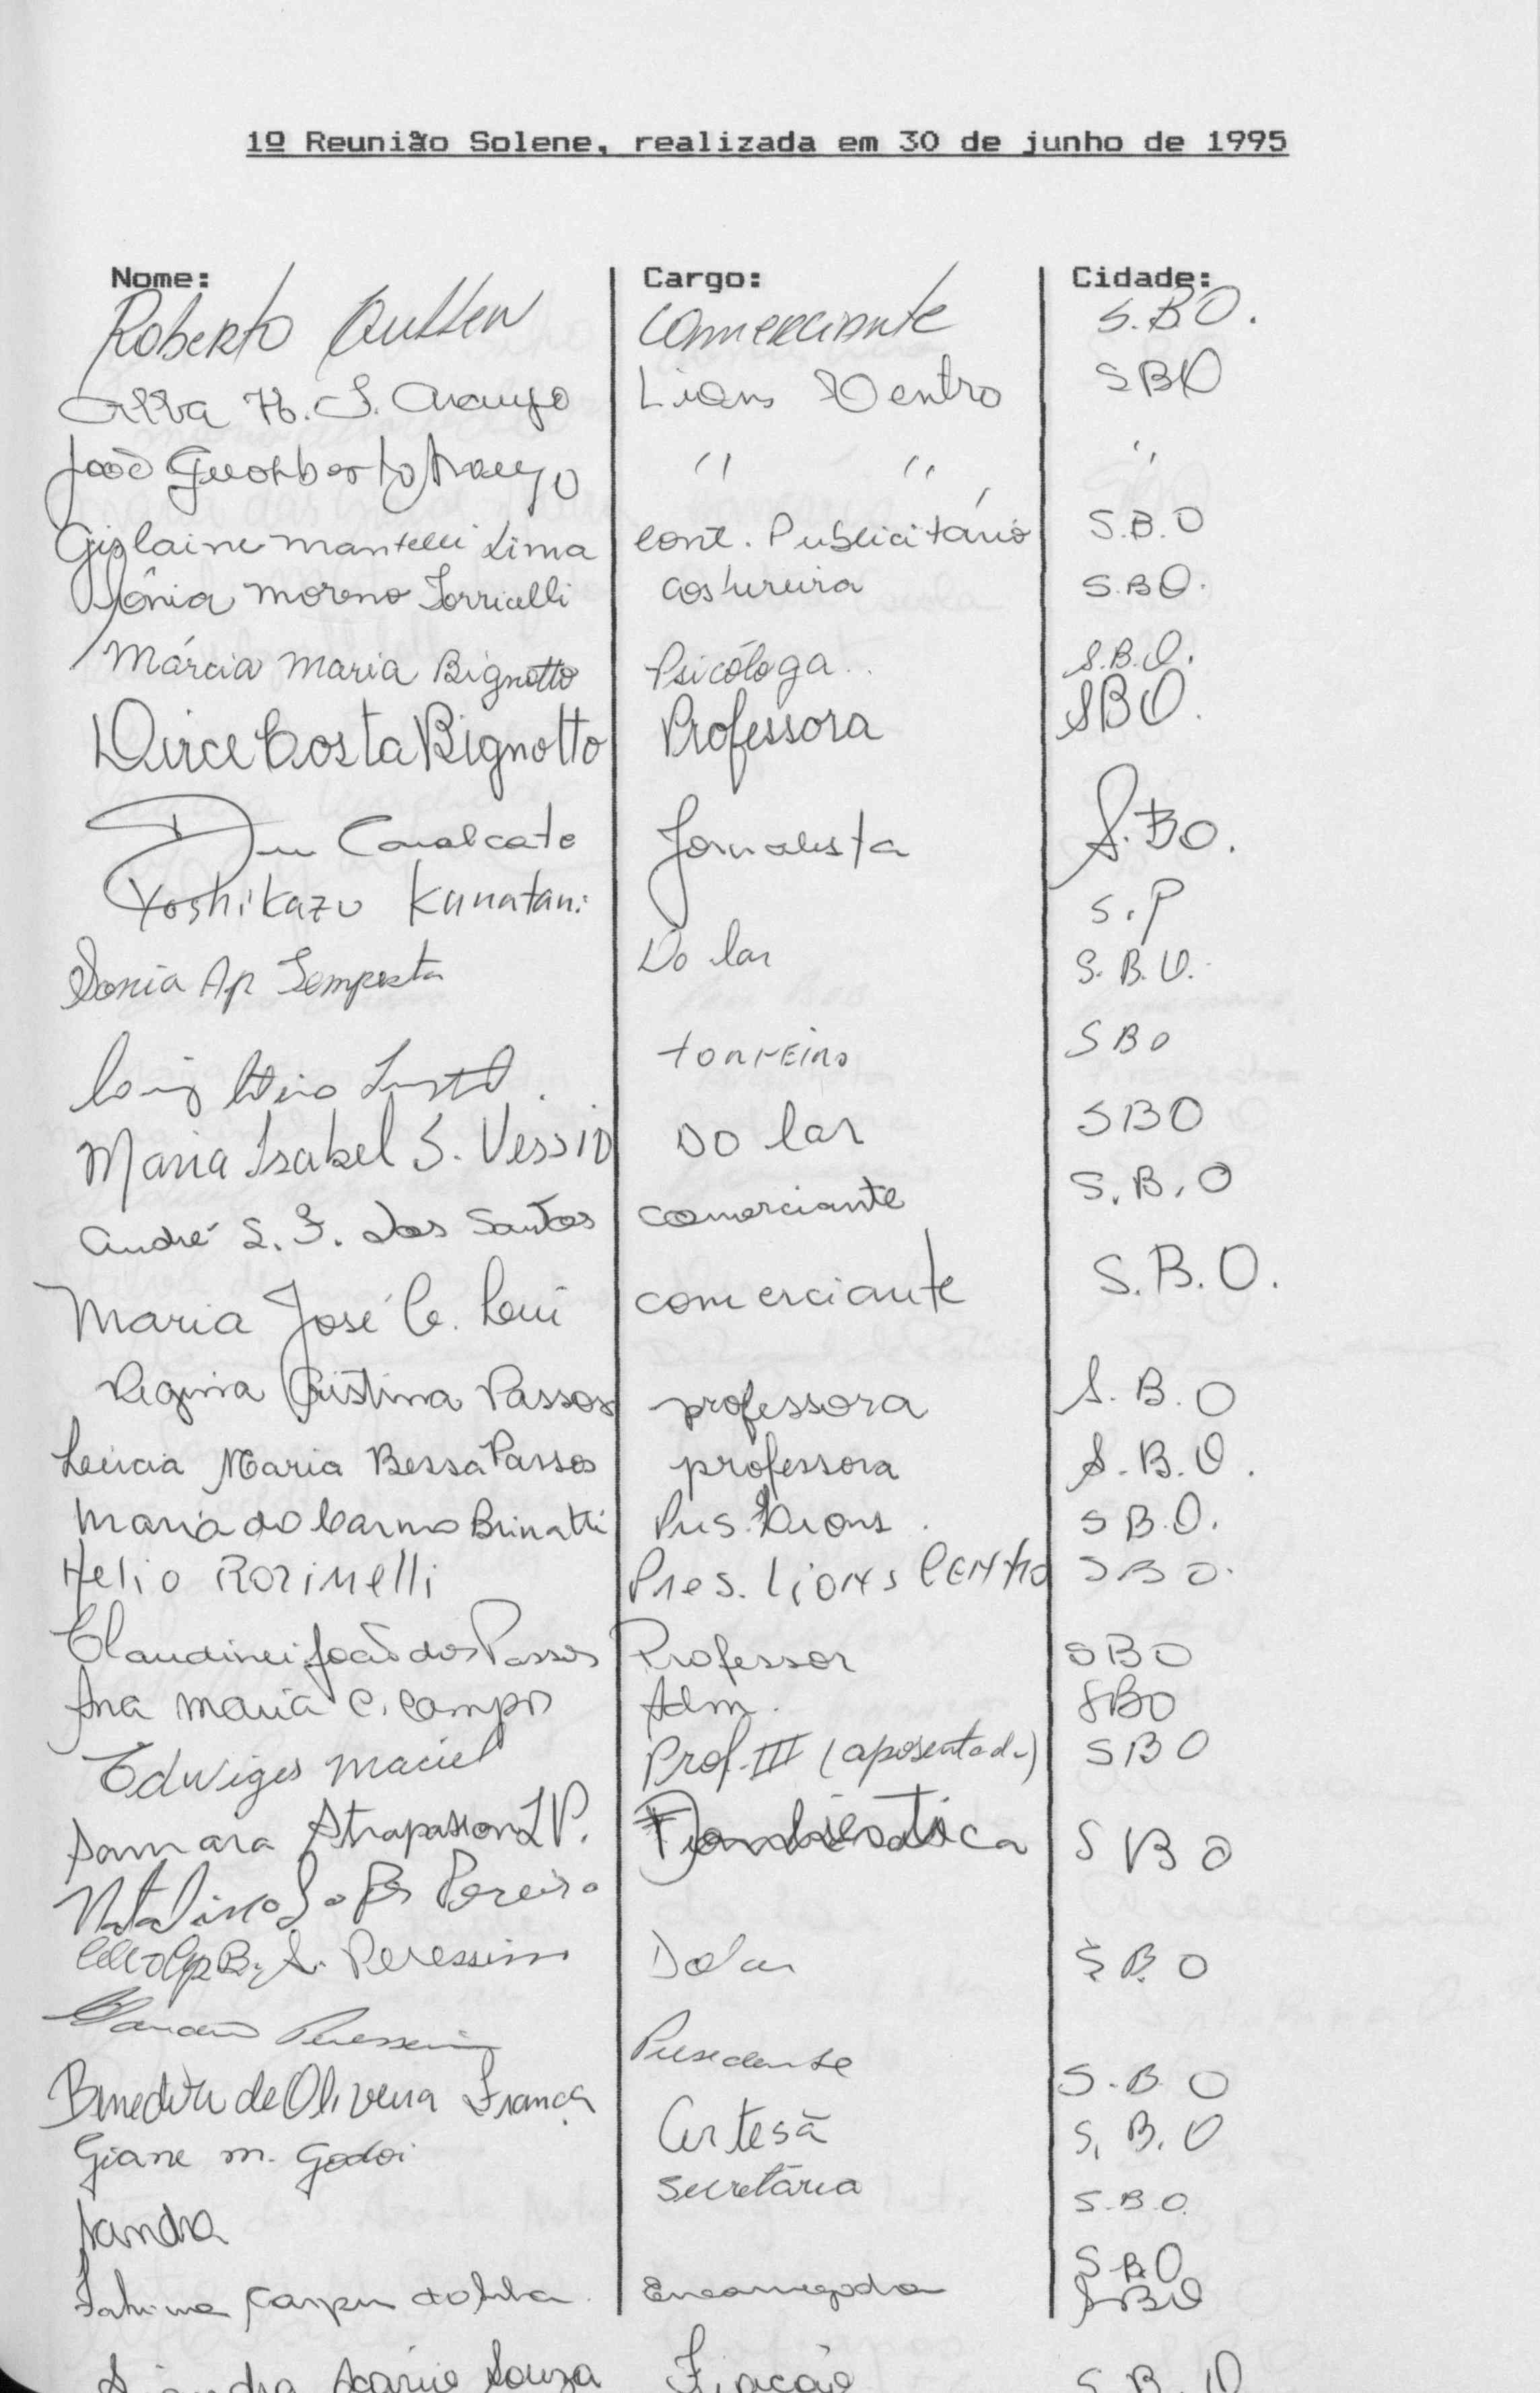 1º Reunião Solene, realizada em 30 de junho de 1995
Nome: Cargo: Cidade:
Roberto Comerciante S.B.O.
Araujo Lions Centro SBO
João Araujo " " "
Gislaine Mantelli Lima Cont. Publicitário S.B.O
Sônia Moreno Torricelli Costureira S.BO.
Márcia Maria Bignotto Psicóloga S.B.O.
Dirce Costa Bignotto Professora SBO.
Cavalcate Jornalista S.BO.
Yoshikazu Kunatani S.P
Sonia Ap Tempesta Do lar S.B.O.
torneiro SBO
Maria Isabel S. Vessio DO lar SBO
André L. F. dos Santos comerciante S.B.O
Maria José C. comerciante S.B.O.
Regina Cristina Passos professora S.B.O
Lúcia Maria Bessa Passos professora S.B.O.
Maria do Carmo Brinatti Pres. Lions. S B.O.
Helio Rorinelli Pres. Lions Centro SBO.
Claudinei João dos Passos Professor SBO
Ana Maria C. Campos Adm. SBO
Edwiges Maciel Prof. III (aposentada) SBO
Samara Strapasson L P. SBO
Natalino Lopes Pereira
Peressim Do lar S B. O
Peressim Presidente
Benedita de Oliveira França Artesã S.B O
Giane M. Godoi Secretária S.B.O
Sandra S.B.O.
Fatima Encarregada S.B.O
SBO
Souza Fiação S.B.O